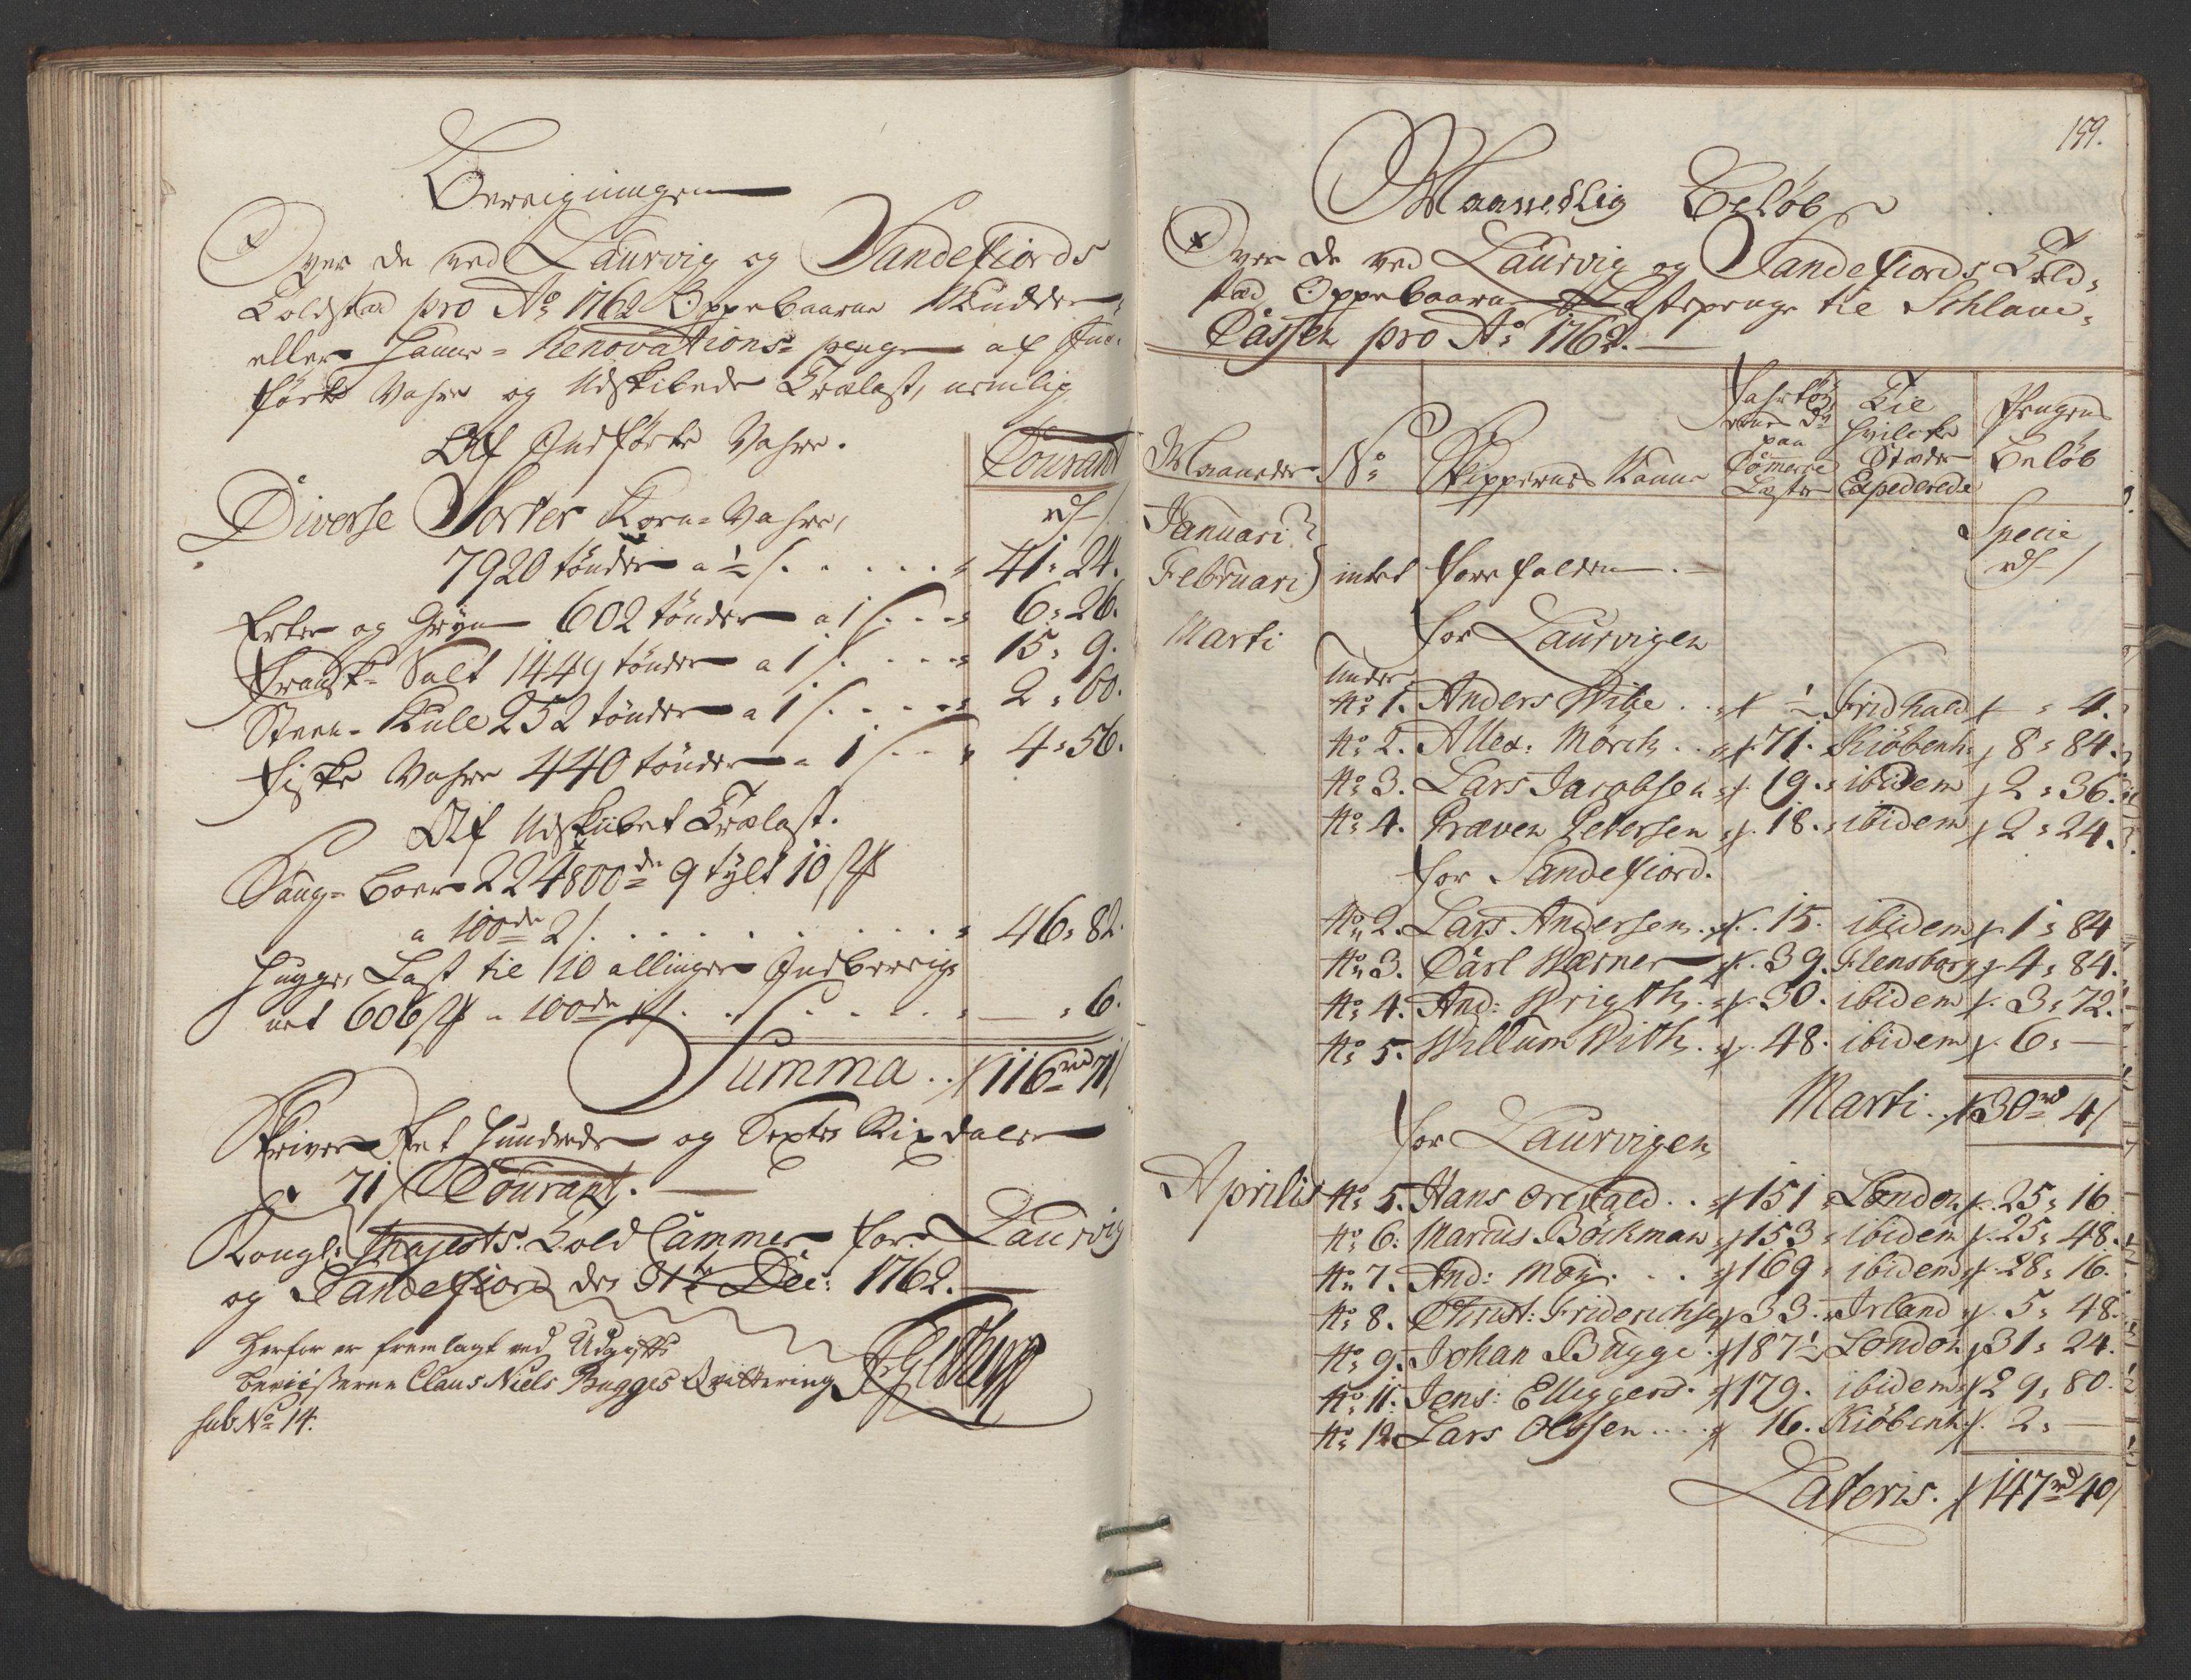 Beregningen
Over de ved Laurvig og Sandefiords
Toldsted pro Ao 1762 Oppebaarne Mudder
eller Havne- Renovations- penge af Ind-
førte Vahre og Udskibede Trælast, nemlig
Af Indførte Vahre.
Courant
Diverse Sorter Korn-Vahre,
rd s
7920 tønder a ½ s. . . . . . 41: 24.
Erter og Gryn 602 tønder a 1 s. . . 6: 26.
Fransk- Salt 1449 tønder a 1 s. . . . 15: 9.
Steen- Kull 252 tønder a 1 s. . . . 2: 60.
Fiske Vahre 440 tønder a 1 s. . . 4: 56.
Af Udskibet Trælast.
Saug- Boer 224800de 9 tylt 10 st
a 100de 2 s. . . . . . . . . . 46: 82.
Hugge, Last til 10 allinger Indbereig-
net 606 st a 100de 1 s. . . . . . . — : 6.
Summa . . 116 rd 71 s
Skriver Et Hundrede og Sexten Rixdaler
71 s Courant.
Kongl: Majests. Told Cammer for Laurvig
og Sandefiord den 31te Dec: 1762.
Herfor er fremlagt ved Udgifts
beviiserne Claus Niels Bugges Qvittering
sub No 14.
159.
Maanedlig Beløb
Over de ved Laurvig og Sandefiords Told-
sted Oppebaarne Lastepenge til Schlave-
Cassen pro Ao 1762.
Maaneder No Skippernes Navne Fahrtøy erne Dr paa Commerce Læster Til Hvilcke Stæder Expederede Pengens Beløb
Januari Specie
Februari intet forefalden. rd s
Marti for Laurvigen
Under
No 1. Anders Wiße . . ½ Fridhald — : 4.
No 2. Allex: Mörch . . 71. Kiöbenh: 8: 84.
No 3. Lars Jacobsen 19. ibidem 2: 36.
No 4. Præven Petersen 18. ibidem 2: 24.
for Sandefiord.
No 2. Lars Andersen . 15. ibidem 1: 84
No 3. Carl Wærner 39. Flensborg 4: 84.
No 4. And: Wrigth . 30. ibidem 3: 72.
No 5. Willum With . 48. ibidem 6: —
Marti . 30 rd 4 s
for Laurvigen
Aprilis No 5. Hans Orewald . . 151 London 25: 16
No 6. Marcus Böckman 153 ibidem 25: 48.
No 7. And: Møy . . . 169 ibidem 28: 16.
No 8. Christ: Friderichsen 33. Irland 5: 48.
No 9. Johan Bugge . 187½ London 31: 24.
No 11. Jens: Elliggerd. 179. ibidem 29: 80.
No 12. Lars Olssen . . . . 16. Kiöbenh: 2: —
Lateris. 147 rd 40 s